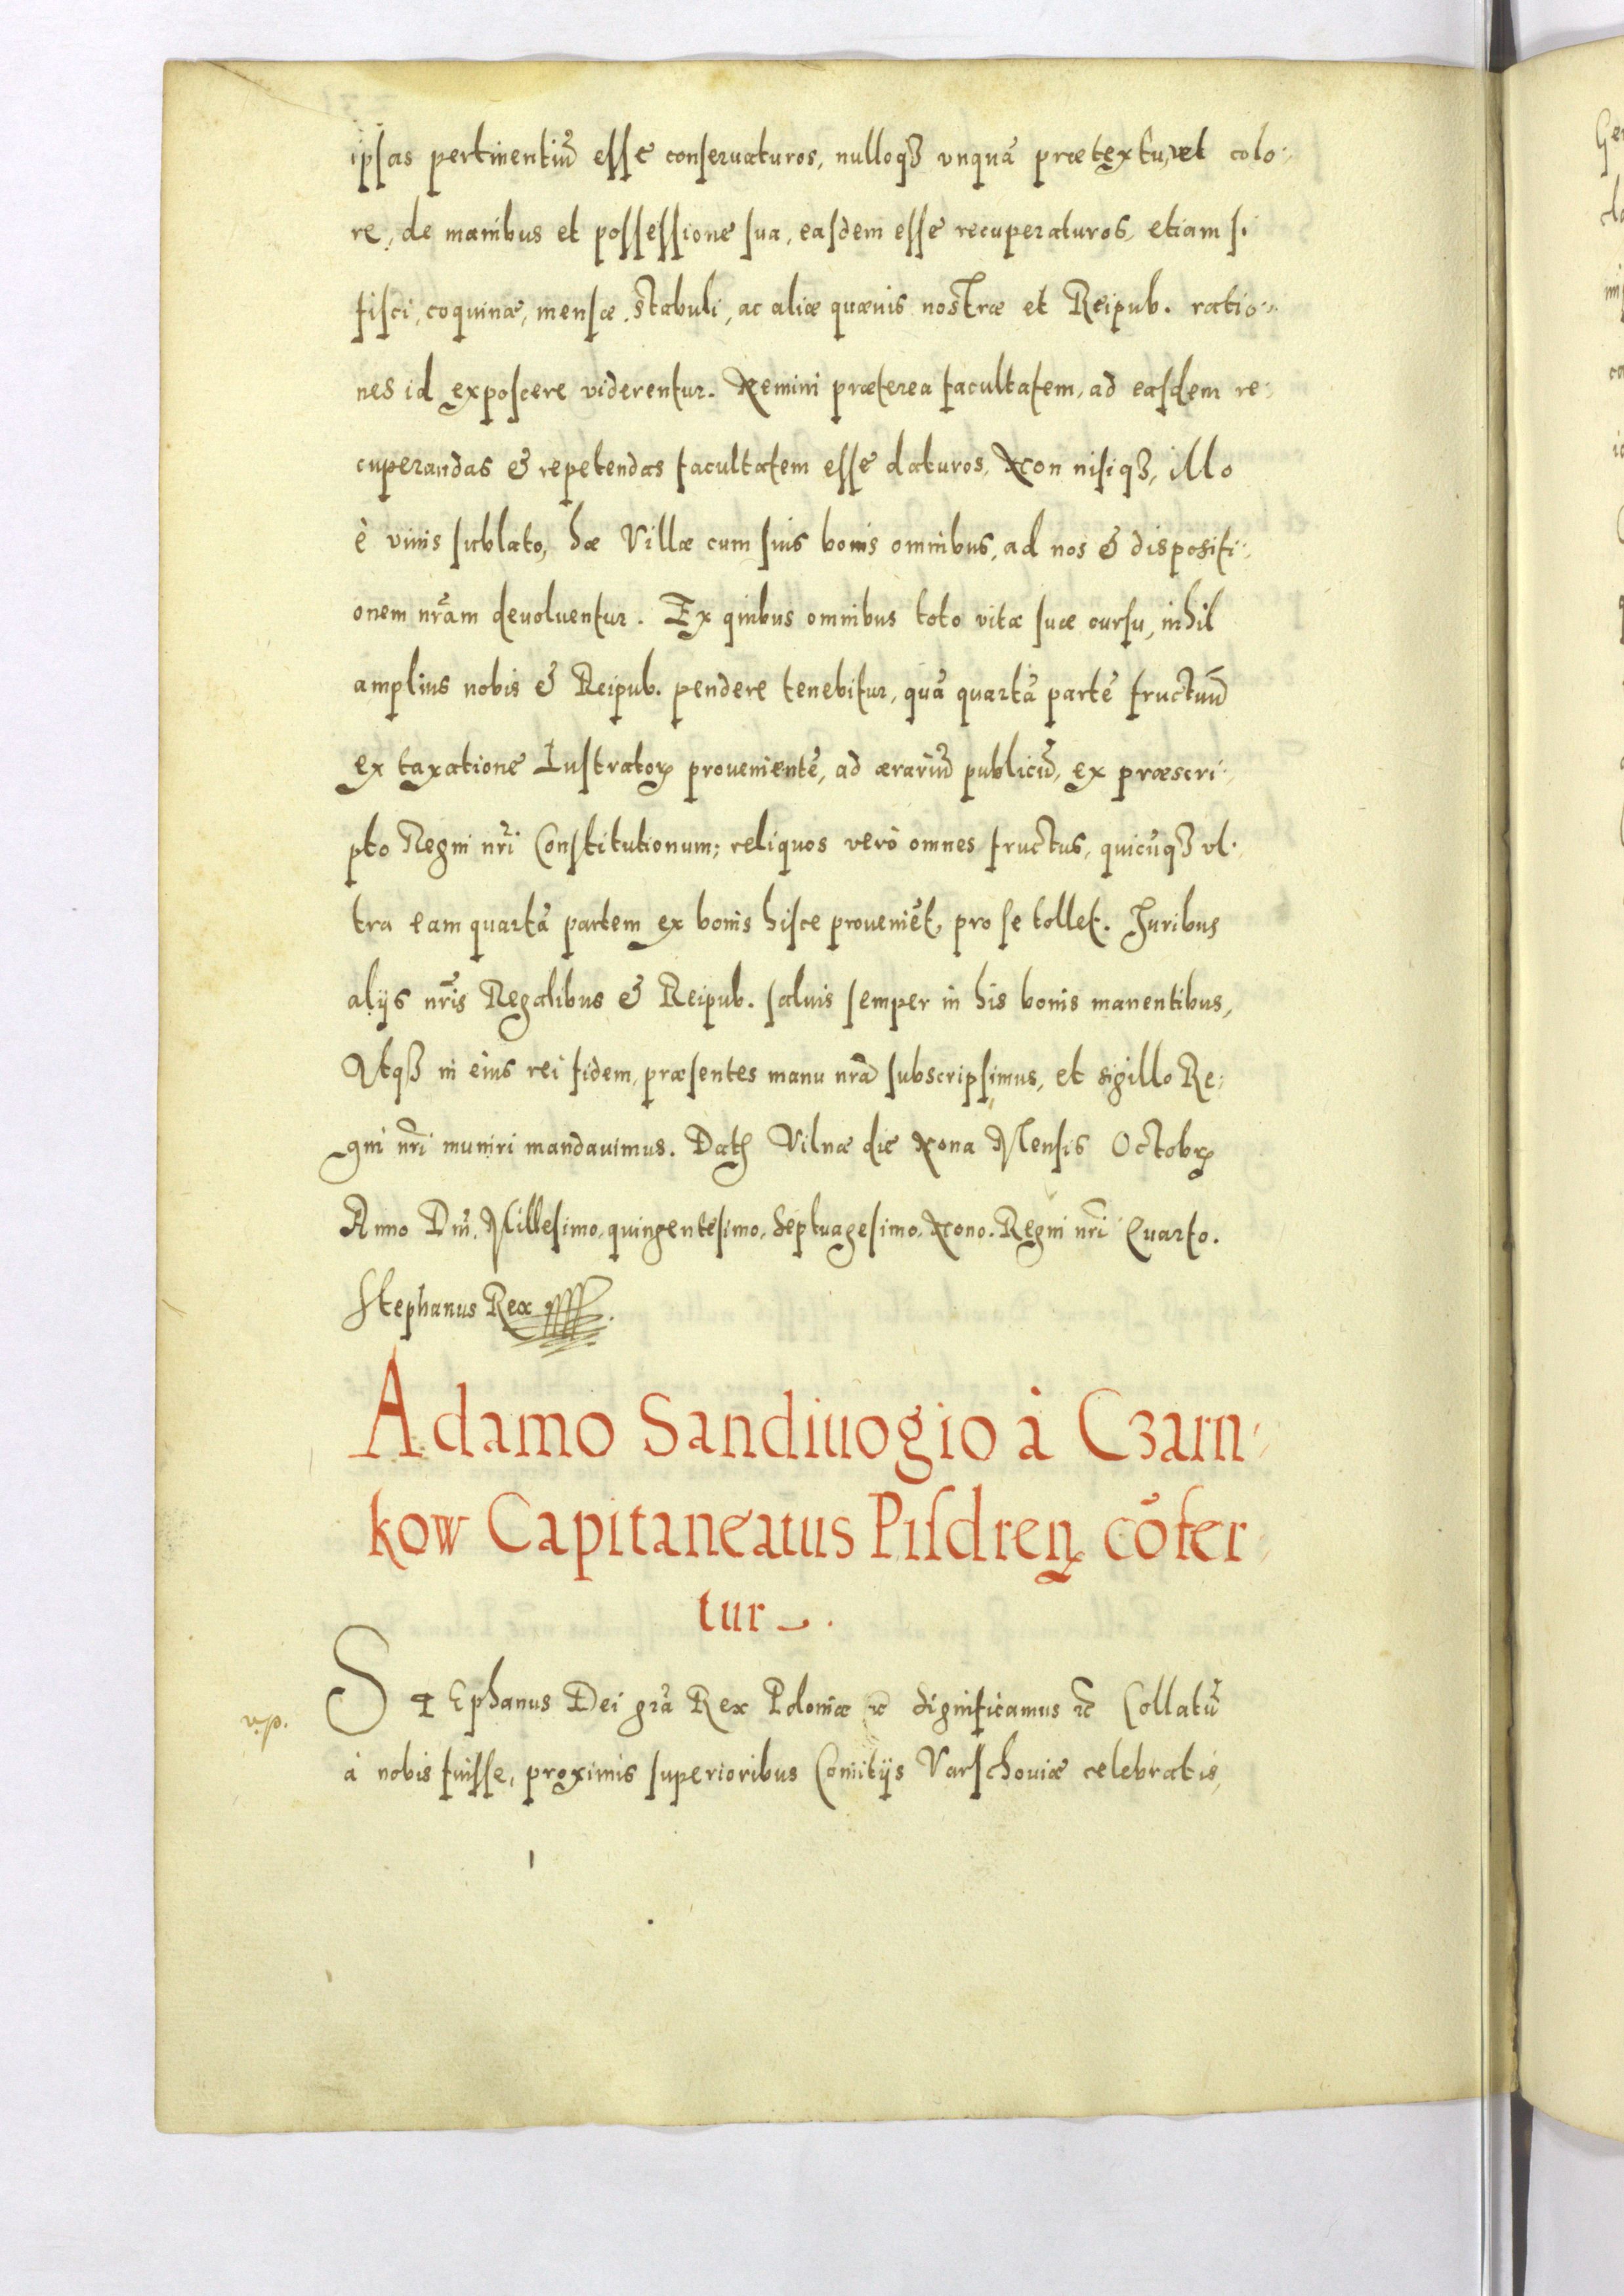 ipsas pertinentiũ esse conseruaturos, nulloqȝ vnquã prætextu, vel colo:
re, de manibus et possessione sua, easdem esse recuperaturos, etiam si
fisci, coquinæ, mensæ, stabuli, ac aliæ quæuis nostræ et Reipub. ratio:
nes id exposcere viderentur. Nemini præterea facultatem, ad easdem re:
cuperandas & repetendas facultatem esse daturos, Non nisiqȝ, illo
è viuis sublato, hæ Villæ cum suis bonis omnibus, ad nos & dispositi:
onem nr̃am deuoluentur. Ex quibus omnibus toto vitæ suæ cursu, nihil
amplius nobis & Reipub. pendere tenebitur, quã quartã partẽ fructuũ
ex taxatione Lustratoꝝ prouenientẽ, ad ærariũ publicũ, ex præscri:
pto Regni nr̃i Constitutionum; reliquos verò omnes fructus, quicũqȝ vl:
tra eam quartã partem ex bonis hisce proueniẽt, pro se tollet. Iuribus
alijs nr̃is Regalibus & Reipub. saluis semper in his bonis manentibus,
Atqȝ in eius rei fidem, præsentes manu nr̃a subscripsimus, et sigillo Re:
gni nr̃i muniri mandauimus. Datꝭ Vilnæ die Nona Mensis Octobꝝ
Anno Dñi, Millesimo, quingentesimo, Septuagesimo, Nono. Regni nr̃i Quarto.
Stephanus Rex
Adamo Sandiuogio à Czarn:
kow Capitaneatus Pisdreñ cõfer:
tur.
STEphanus Dei grã Rex Poloniæ ꝛc Significamus ꝛc Collatũ
à nobis fuisse, proximis superioribus Comitijs Varschouiæ celebratis,